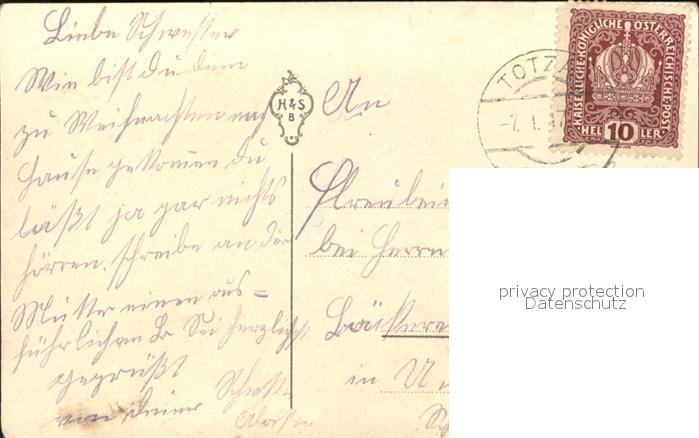 Liebe Schwester
Wie bist du denn
zu Weihnachten nach
Hause gekommen du
läßt ja gar nichts
hörren. schreibe an die
Mutter einen aus=
führlichen B. Sei herzlichst
gegrüßt
von deiner Schw.
H&S
B
An
Fräulein
bei Herrn
Bäckere
in U
TOTZ
-7. I. 17
KAISERLICHE·KÖNIGLICHE ÖSTERREICHISCHE·POST
HEL 10 LER
privacy protection
Datenschutz